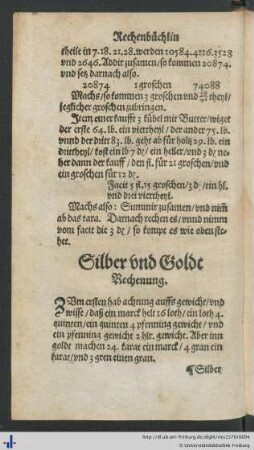 Rechenbüchlin
theile in 7.18.21.28. werden 10584.4116.3528
vnd 2646. Addir zusamen/ so kommen 20874.
vnd setz darnach also.
20874 1 groschen 74088
Machs/ so kommen 3 groschen vnd theyl/
jeglicher groschen zubringen.
Item einer kaufft 3 kübel mit Butter/ wiget
der erste 64. lb. ein vierrheyl/ der ander 75. lb.
vnnd der dritt 83. lb. geht ab für holtz 29. lb. ein
drittheyl/ kost ein lb 7 / ein heller/ vnd 3 ne-
her dann der kauff/ den fl. für 21 groschen/ vnd
ein groschen für 12
Facit 5 fl. 15 groschen/ 3 / ein hl.
vnd drei viertheyl.
Machs also: Summir zusamen/ vnd nim
ab das tara. Darnach rechen es/ vnnd nimm
vom facit die 3 / so kompt es wie oben ste-
het.
Silber vnd Goldt
Rechenung.
ZVm ersten hab achtung auffs gewicht/ vnd
wisse/ daß ein marck helt 16 loth/ ein loth 4.
quinten/ ein quinten 4 pfenning gewicht/ vnd
ein pfenning gewicht 2 hlr. gewicht. Aber inn
golde machen 24. karat ein marck/ 4 gran ein
karat/ vnd 3 gren einen gran.
¶ Silber
http://dl.ub.uni-freiburg.de/diglit/ries1578/0094
© Universitätsbibliothek Freiburg